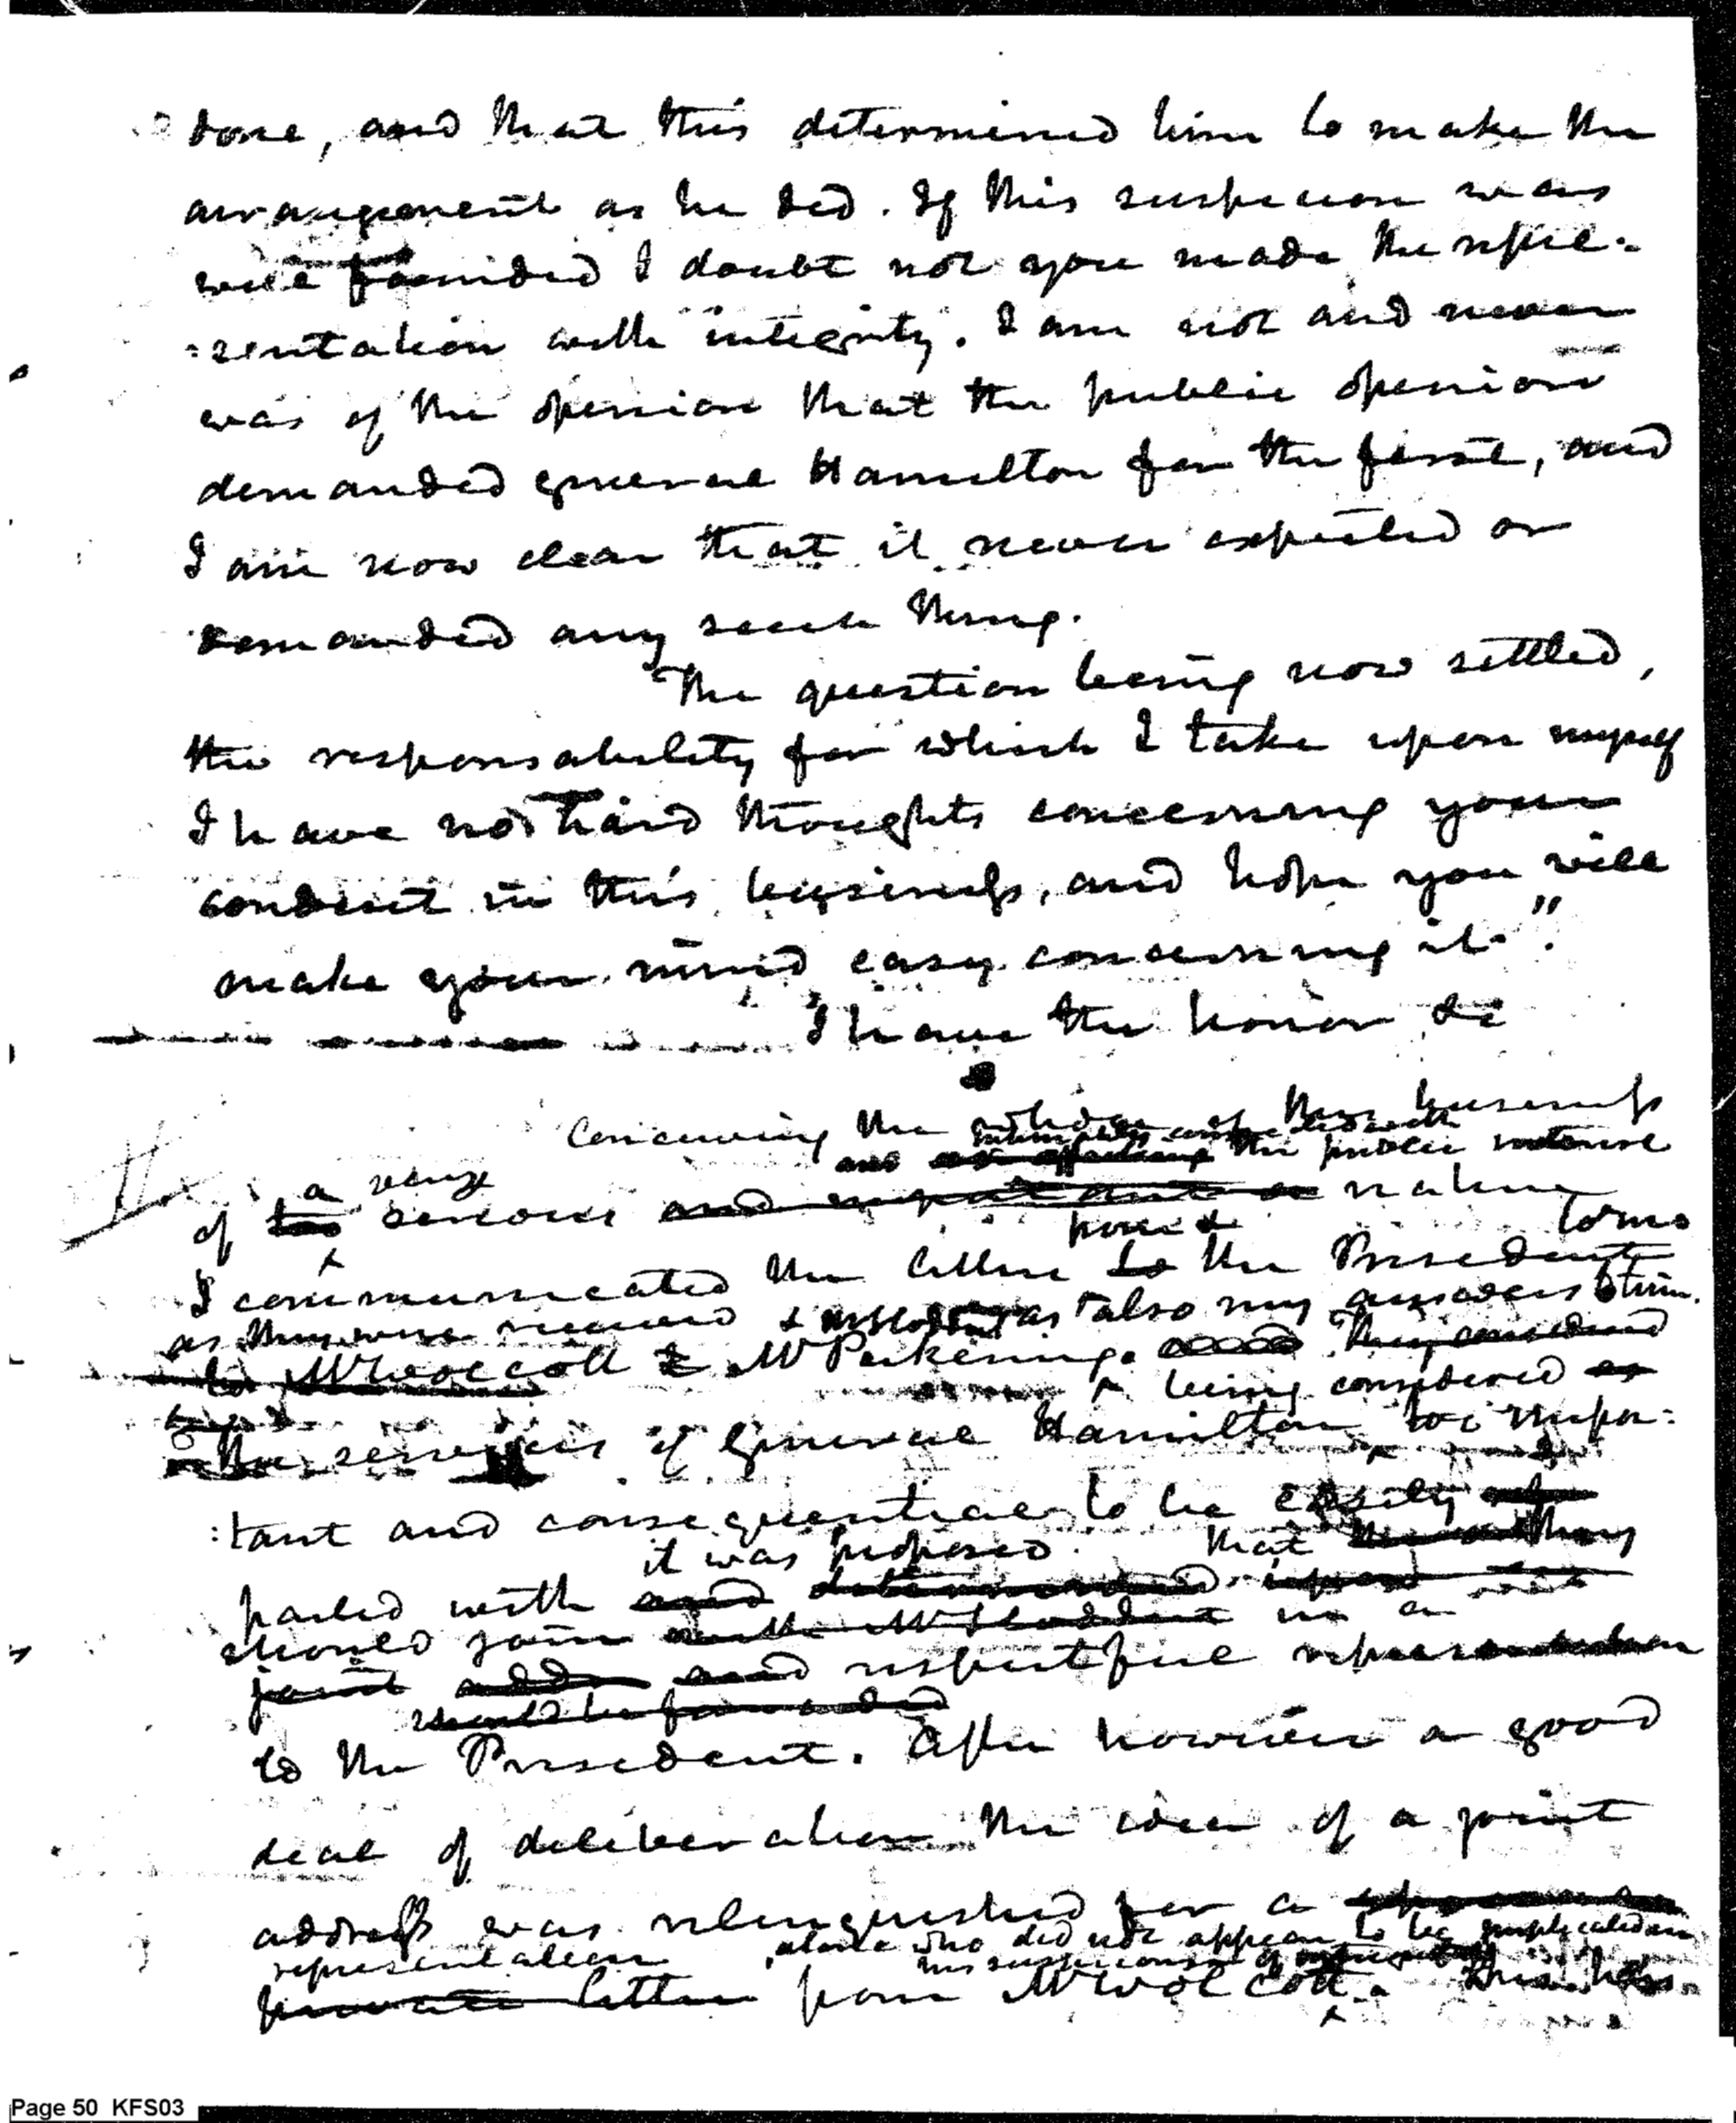 done, and that this determined him to make the
arrangement as he did. If this suspicion was
well founded I doubt not you made the repre-
:sentation with integrity. I am not and never
was of the opinion that the public opinion
demanded general Hamilton for the first, and
I am now clear that it never expected or
demanded any such thing.
The question being now settled,
the responsability for which I take upon myself
I have no hard thoughts concerning your
conduct in this business, and hope you will
make your mind easy concerning it."
I have the honor &c
Conceiving the whole of this business
intimately connected with
and the public interest
a very
of serious and important nature
from & to me
I communicated the letters to the President
as they were received & as also my answers to him.
to Mr Wolcott & Mr Pickering. They considered
being considered as
the services of General Hamilton too impor:
:tant and consequential to be easily
it was proposed that they
parted with and determined upon
should join with Mr Stoddert in a
joint and respectful representation
should be forwarded
to the President. After however a good
deal of deliberation the idea of a joint
address was relinquished for a
representation alone who did not appear to be implicated in
his suspicions of
private letter from Mr Wolcott. This
Page 50 KFS03